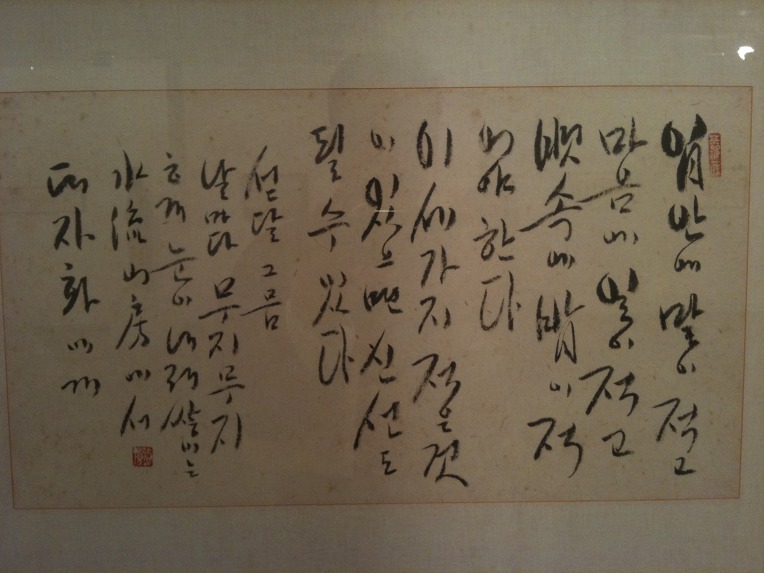 입안에 말이 적고
마음에 일이 적고
뱃속에 밥이 적
어야 한다
이 세가지 적은 것
이 있으면 신선도
될 수 있다
섣달 그믐
날마다 무지무지
하게 눈이 내려 쌓이는
水流山房에서
대자화에게